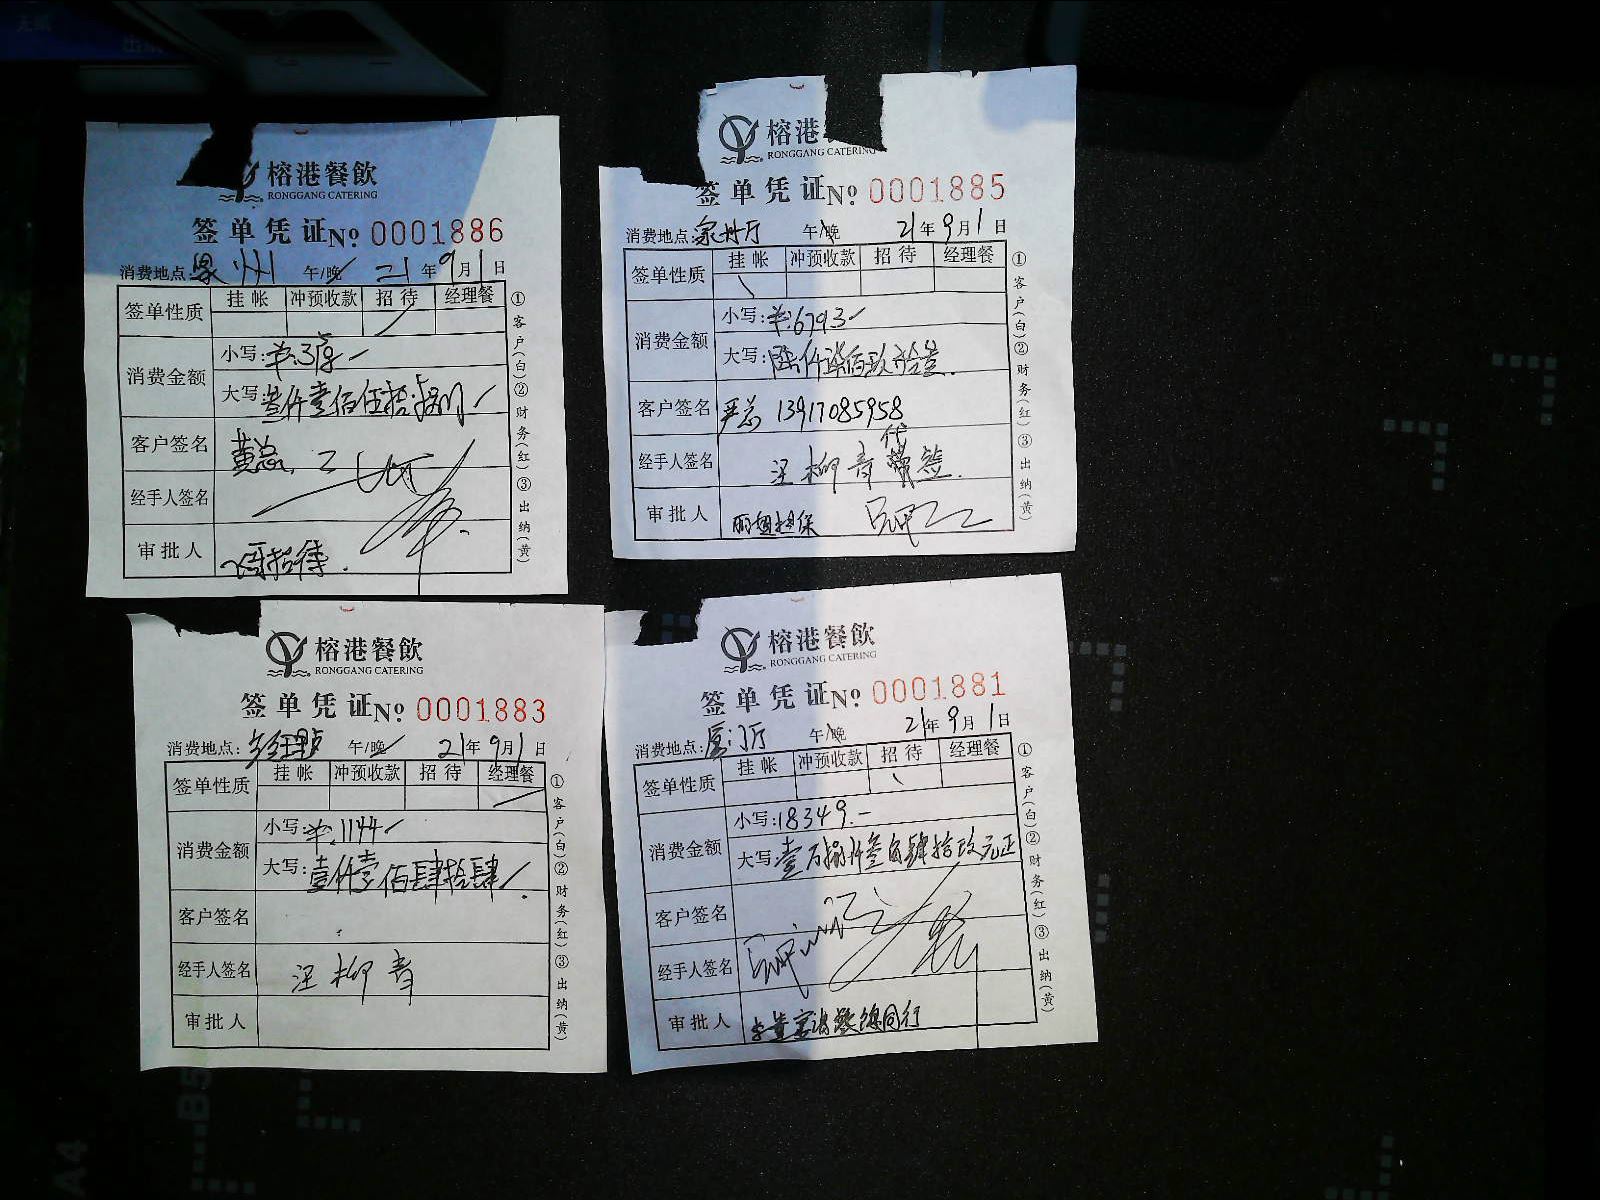 榕港餐飲
RONGGANG CATERING
签单凭证 No 0001886
消费地点: 午/晚 21年9月1日
签单性质 挂帐 冲预收款 招待 经理餐
消费金额 小写:
大写: 叁仟壹佰伍拾捌
客户签名 黄总
经手人签名
审批人 招待.
①客户(白)②财务(红)③出纳(黄)
榕港
RONGGANG CATERING
签单凭证 No 0001885
消费地点: 泉州厅 午/晚 21年9月1日
签单性质 挂帐 冲预收款 招待 经理餐
消费金额 小写:¥:6793
大写: 陆仟柒佰玖拾叁.
客户签名 严总 13917085958
代
经手人签名 汪柳青 签.
审批人 丽姐担保
①客户(白)②财务(红)③出纳(黄)
榕港餐飲
RONGGANG CATERING
签单凭证 No 0001883
消费地点: 午/晚 21年9月1日
签单性质 挂帐 冲预收款 招待 经理餐
消费金额 小写:¥.1144
大写: 壹仟壹佰肆拾肆
客户签名
经手人签名 汪柳青
审批人
①客户(白)②财务(红)③出纳(黄)
榕港餐飲
RONGGANG CATERING
签单凭证 No 0001881
消费地点: 厦门厅 午/晚 21年9月1日
签单性质 挂帐 冲预收款 招待 经理餐
消费金额 小写:18349.-
大写: 壹万捌仟叁佰肆拾玖元正
客户签名
经手人签名
审批人 同行
①客户(白)②财务(红)③出纳(黄)
B5
A4